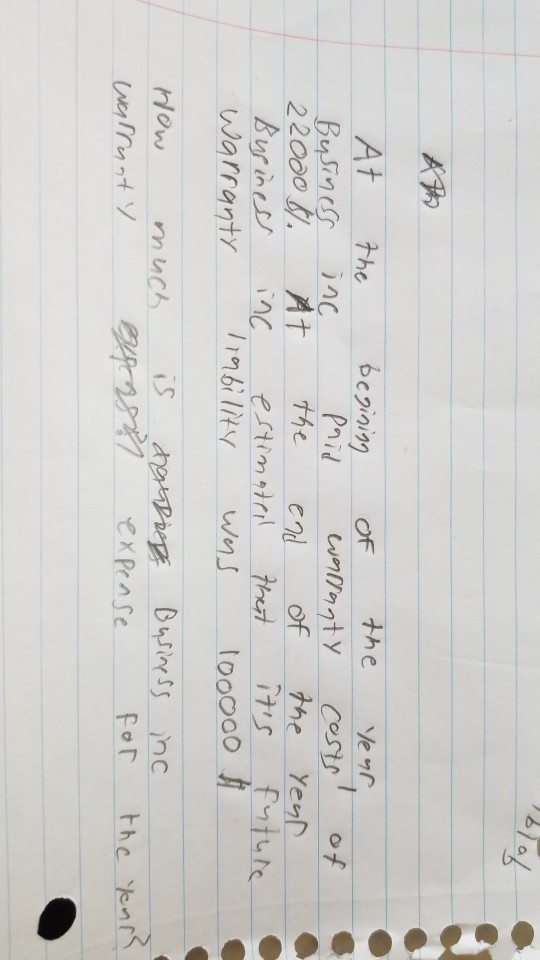 At the begining of the year
Business inc paid warranty costs of
22000$. At the end of the year
Business inc estimated that it's future
warranty liability was 100000 $
How much is Business inc
warranty expense for the year?